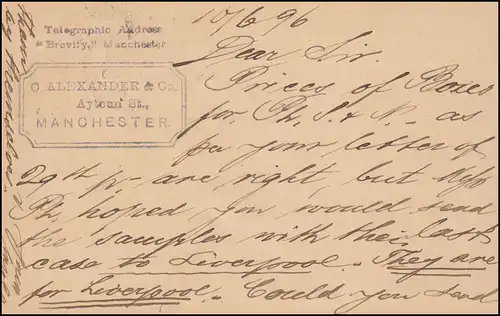 10/6 96
Telegraphic Address
"Brevity," Manchester
G. ALEXANDER & Co.,
Aytoun St.,
MANCHESTER.
Dear Sir.
Prices of Boxes
for Ph, S. & N. as
per your letter of
29th p. are right, but Messrs
Ph. hoped you would send
the samples with the last
case to Liverpool. They are
for Liverpool. Could you send
them
by themselves